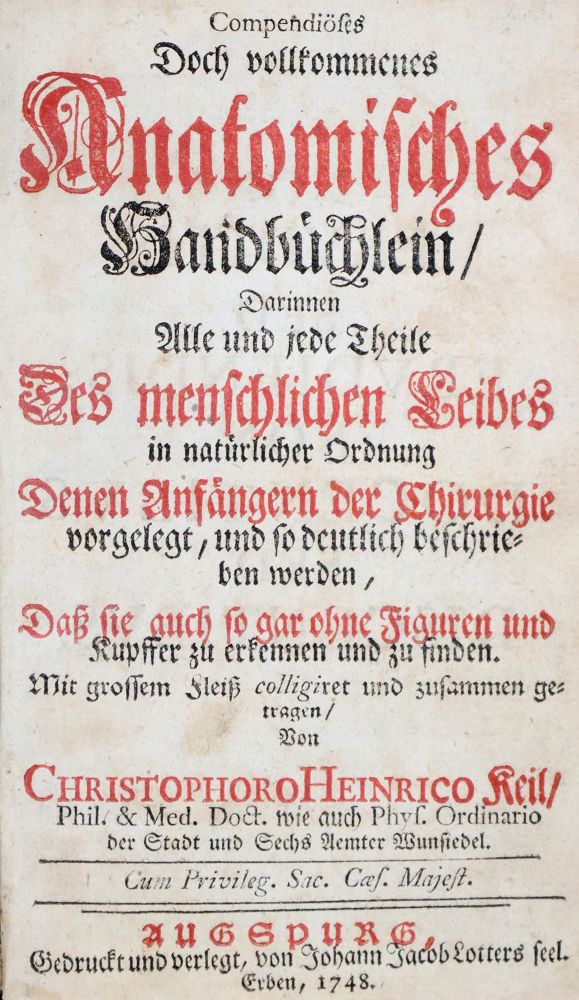 Compendiöses
Doch vollkommenes
Anatomisches
Handbüchlein/
Darinnen
Alle und jede Theile
Des menschlichen Leibes
in natürlicher Ordnung
Denen Anfängern der Chirurgie
vorgelegt, und so deutlich beschrie-
ben werden,
Daß sie auch so gar ohne Figuren und
Kupffer zu erkennen und zu finden.
Mit grossem Fleiß colligiret und zusammen ge-
tragen/
Von
CHRISTOPHORO HEINRICO Keil/
Phil. & Med. Doct. wie auch Phys. Ordinario
der Stadt und Sechs Aemter Wunsiedel.
Cum Privileg. Sac. Cæs. Majest.
AUGSPURG,
Gedruckt und verlegt, von Johann Jacob Lotters seel.
Erben, 1748.